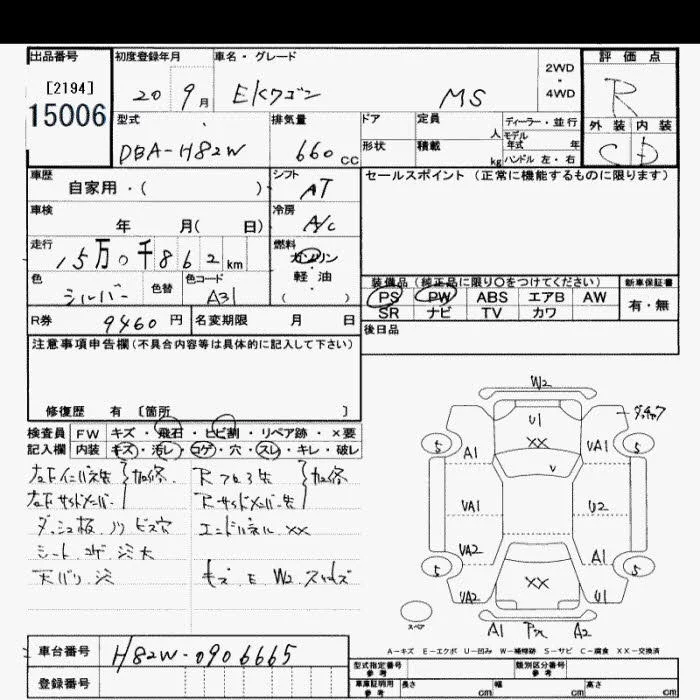 出品番号 初度登録年月 車名・グレード 2WD・4WD 評価点
[2194]
15006
20 9月 EKワゴン MS R
型式 排気量 ドア 定員 人 ディーラー・並行 外装 内装
DBA-H82W 660 CC 形状 積載 kg モデル年式 年 ハンドル 左・右 C D
車歴 自家用・( ) シフト AT セールスポイント（正常に機能するものに限ります）
車検 年 月( 日) 冷房 A/C
走行 15万0千862 km 燃料 ガソリン・軽油 ( )
色 シルバー 色替 色コード A31
装備品（純正品に限り〇をつけてください） 新車保証書
PS PW ABS エアB AW 有・無
SR ナビ TV カワ
R券 9460円 名変期限 月 日 後日品
注意事項申告欄(不具合内容等は具体的に記入して下さい)
修復歴 有 〔箇所 〕
検査員記入欄 FW キズ・飛石・ヒビ割・リペア跡・×要
内装 キズ・汚レ・コゲ・穴・スレ・キレ・破レ
ダッシュ板 ノリ ビス穴 エンドパネル XX
シート コゲ 汚大
天バリ 汚 キズ E W2
W2
U1
XX
V
5 A1 UA1 5
UA1 U2
UA2 A1
5 XX 5
UA2 U1
スペア A1 A2
A－キズ E－エクボ U－凹み W－補修跡 S－サビ C－腐食 XX－交換済
車台番号 H82W-0906665
登録番号
型式指定番号 参考 類別区分番号 参考
車庫証明用 参考 長さ cm 幅 cm 高さ cm